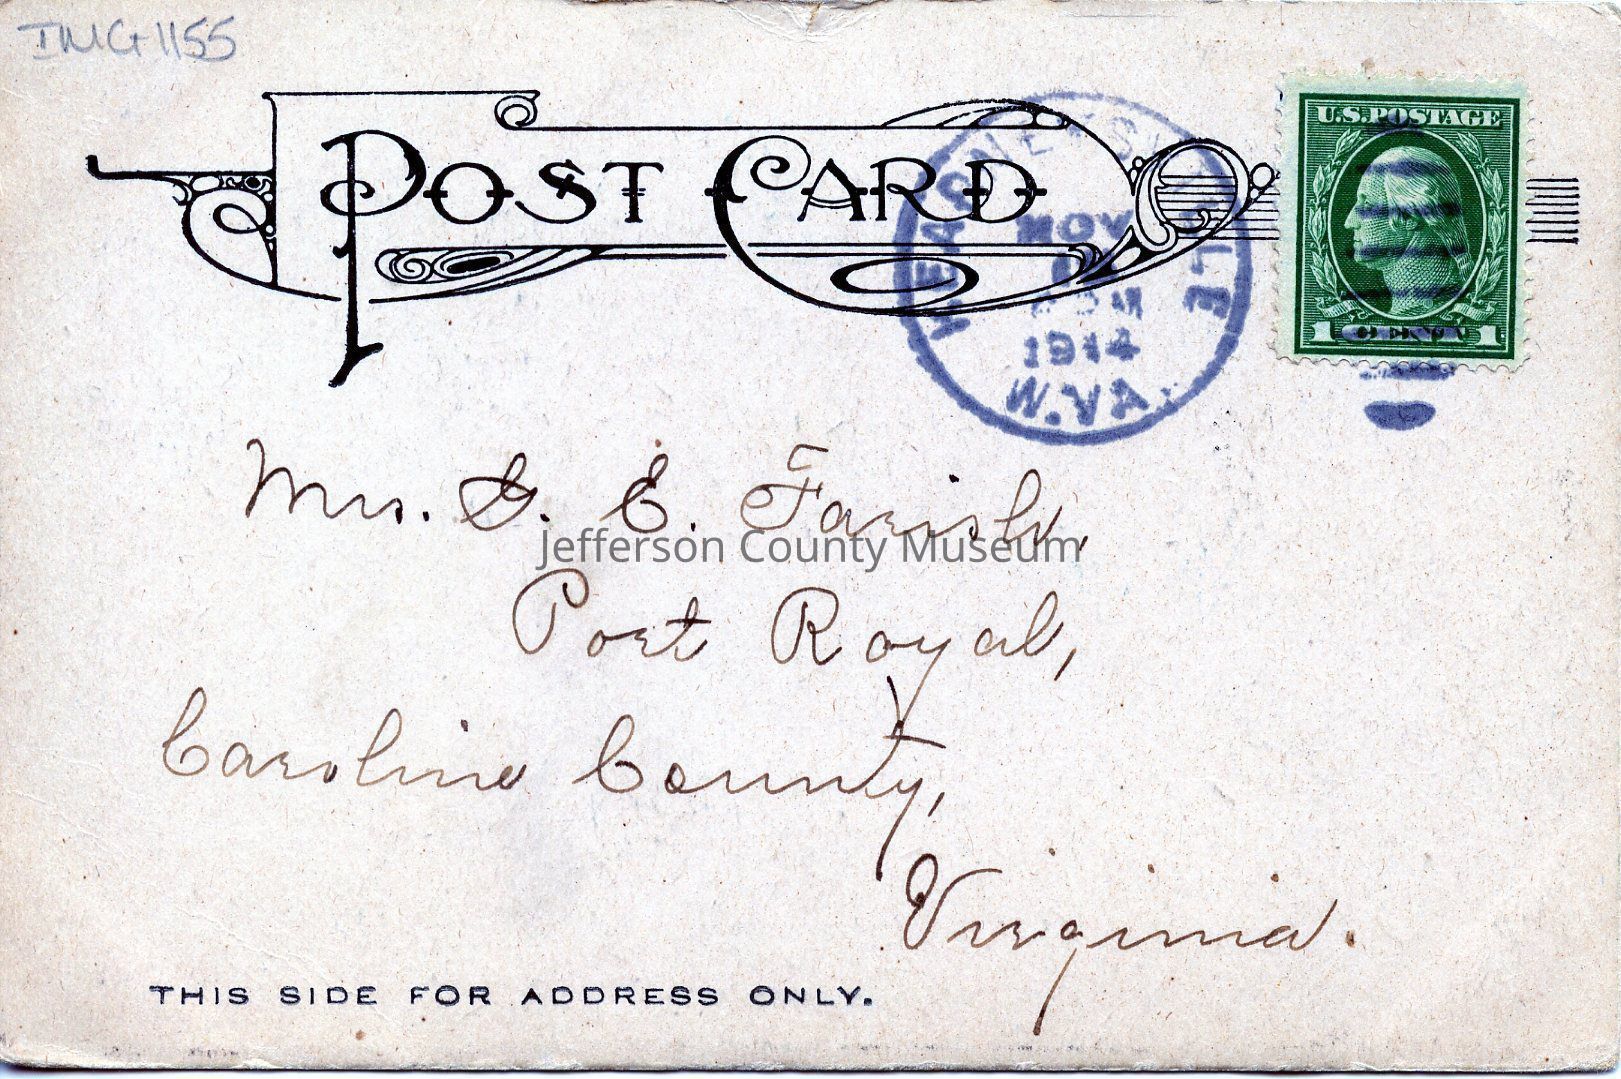 IMG1155
POST CARD
U.S. POSTAGE
KEARNEYSVILLE
NOV
1914
W. VA.
1 CENT 1
Mrs. G. E. Farish,
Jefferson County Museum
Port Royal,
Caroline County,
Virginia.
THIS SIDE FOR ADDRESS ONLY.